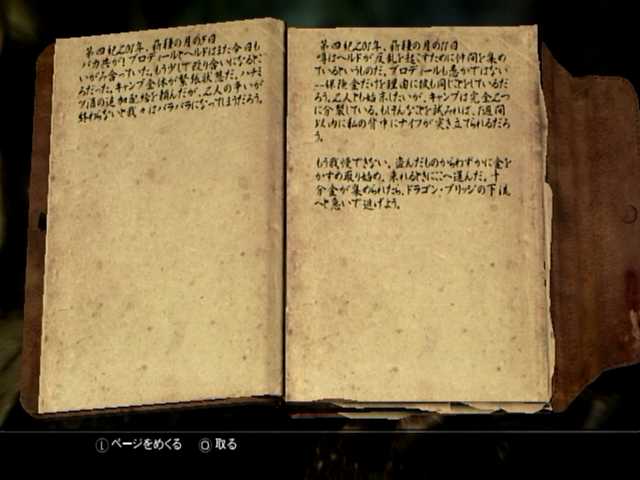 第四紀201年、蒔種の月の5日
バカ共が！ブロディールとヘルドはまた今日も
いがみ合っていた。もう少しで殴り合いになると
ころだった。キャンプ全体が緊張状態だ。ハチミ
ツ酒の追加配給を頼んだが、2人の争いが
終わらないと我々はバラバラになってしまうだろう。
第四紀201年、蒔種の月の11日
噂はヘルドが反乱を起こすために仲間を集め
ているというものだ。ブロディールも愚かではない
--保険金だけを理由に彼も同じことをしているだ
ろう。2人とも始末したいが、キャンプは完全に2つ
に分裂している。もしそんなことを試みれば、1週間
以内に私の背中にナイフが突き立てられるだろ
う。
もう我慢できない。盗んだものからわずかに金を
かすめ取り始め、来れるときにここへ運んだ。十
分金が集められたら、ドラゴン・ブリッジの下流
へと急いで逃げよう。
L ページをめくる ○ 取る